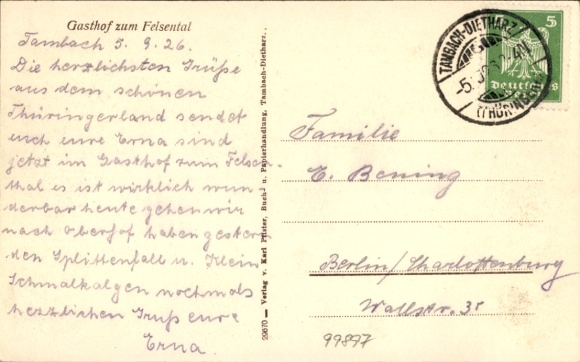 Gasthof zum Felsental
Tambach 5. 9. 26.
Die herzlichsten Grüße
aus dem schönen
Thüringerland sendet
euch eure Erna sind
jetzt im Gasthof zum Felsen-
thal es ist wirklich wun
derbar heute gehen wir
nach Oberhof haben gestern
den Splittenfall u. Klein
Schmalkalgen nochmals
herzlichen Gruß eure
Erna.
29670 – Verlag v. Karl Pfister, Buch- u. Papierhandlung, Tambach-Dietharz.
TAMBACH-DIETHARZ
(THÜRINGEN)
5
Deutsches
Familie
E. Bening
Berlin/Charlottenburg
Wallstr. 35
99897